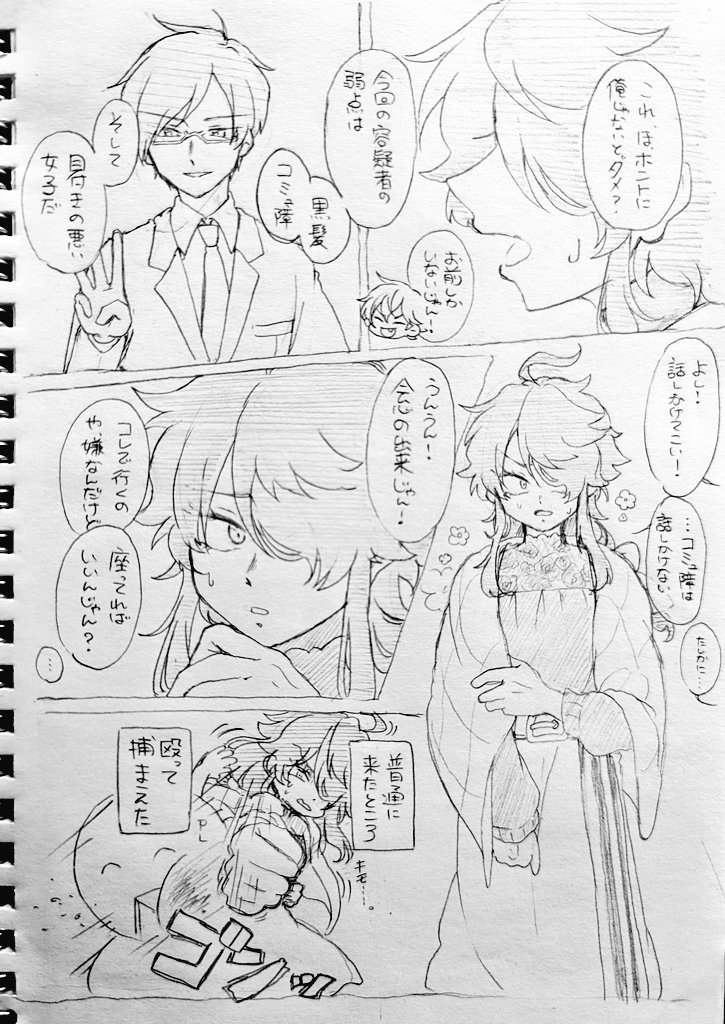 これ、ほホントに
俺じゃないとダメ？
お前しか
いないじゃん！
今回の容疑者の
弱点は
黒髪
コミュ障
そして
目付きの悪い
女子だ
よし！
話しかけてこい！
…コミュ障は
話しかけない
たしかに…
うんうん！
会心の出来じゃん！
コレで行くの
や、嫌なんだけど
座ってれば
いいんじゃん？
…
普通に
来たところ
殴って
捕まえた
キモ…。
ゴンッ